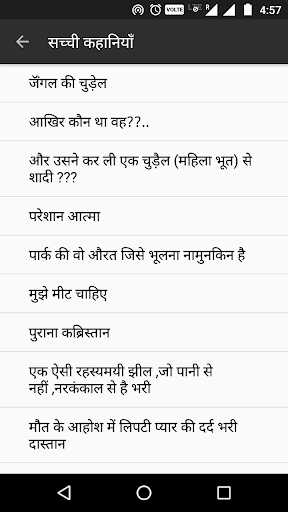 4:57
VOLTE
LTE
R
सच्ची कहानियाँ
जॅंगल की चुड़ेल
आखिर कौन था वह??..
और उसने कर ली एक चुड़ैल (महिला भूत) से
शादी ???
परेशान आत्मा
पार्क की वो औरत जिसे भूलना नामुनकिन है
मुझे मीट चाहिए
पुराना कब्रिस्तान
एक ऐसी रहस्यमयी झील ,जो पानी से
नहीं ,नरकंकाल से है भरी
मौत के आहोश में लिपटी प्यार की दर्द भरी
दास्तान